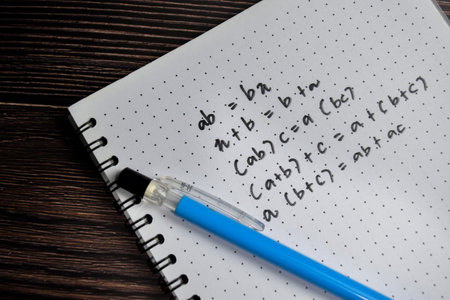 ab = ba
a+b = b+a
(ab)c = a(bc)
(a+b)+c = a+(b+c)
a(b+c) = ab+ac